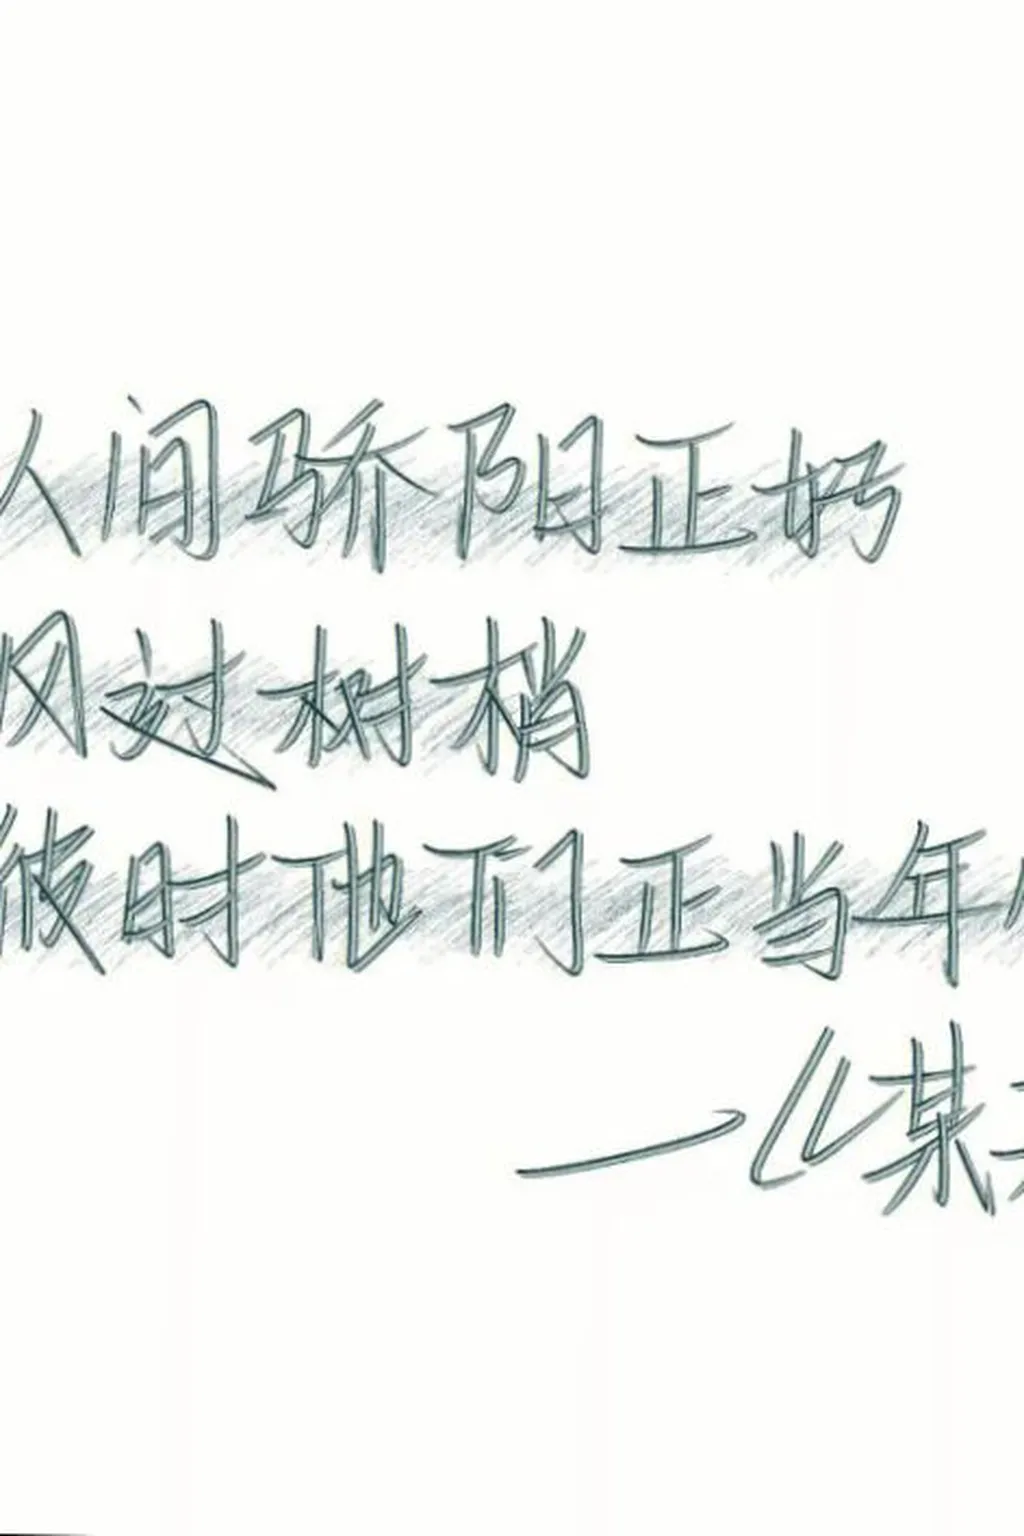 人间骄阳正好
风过树梢
彼时他们正当年
—《某